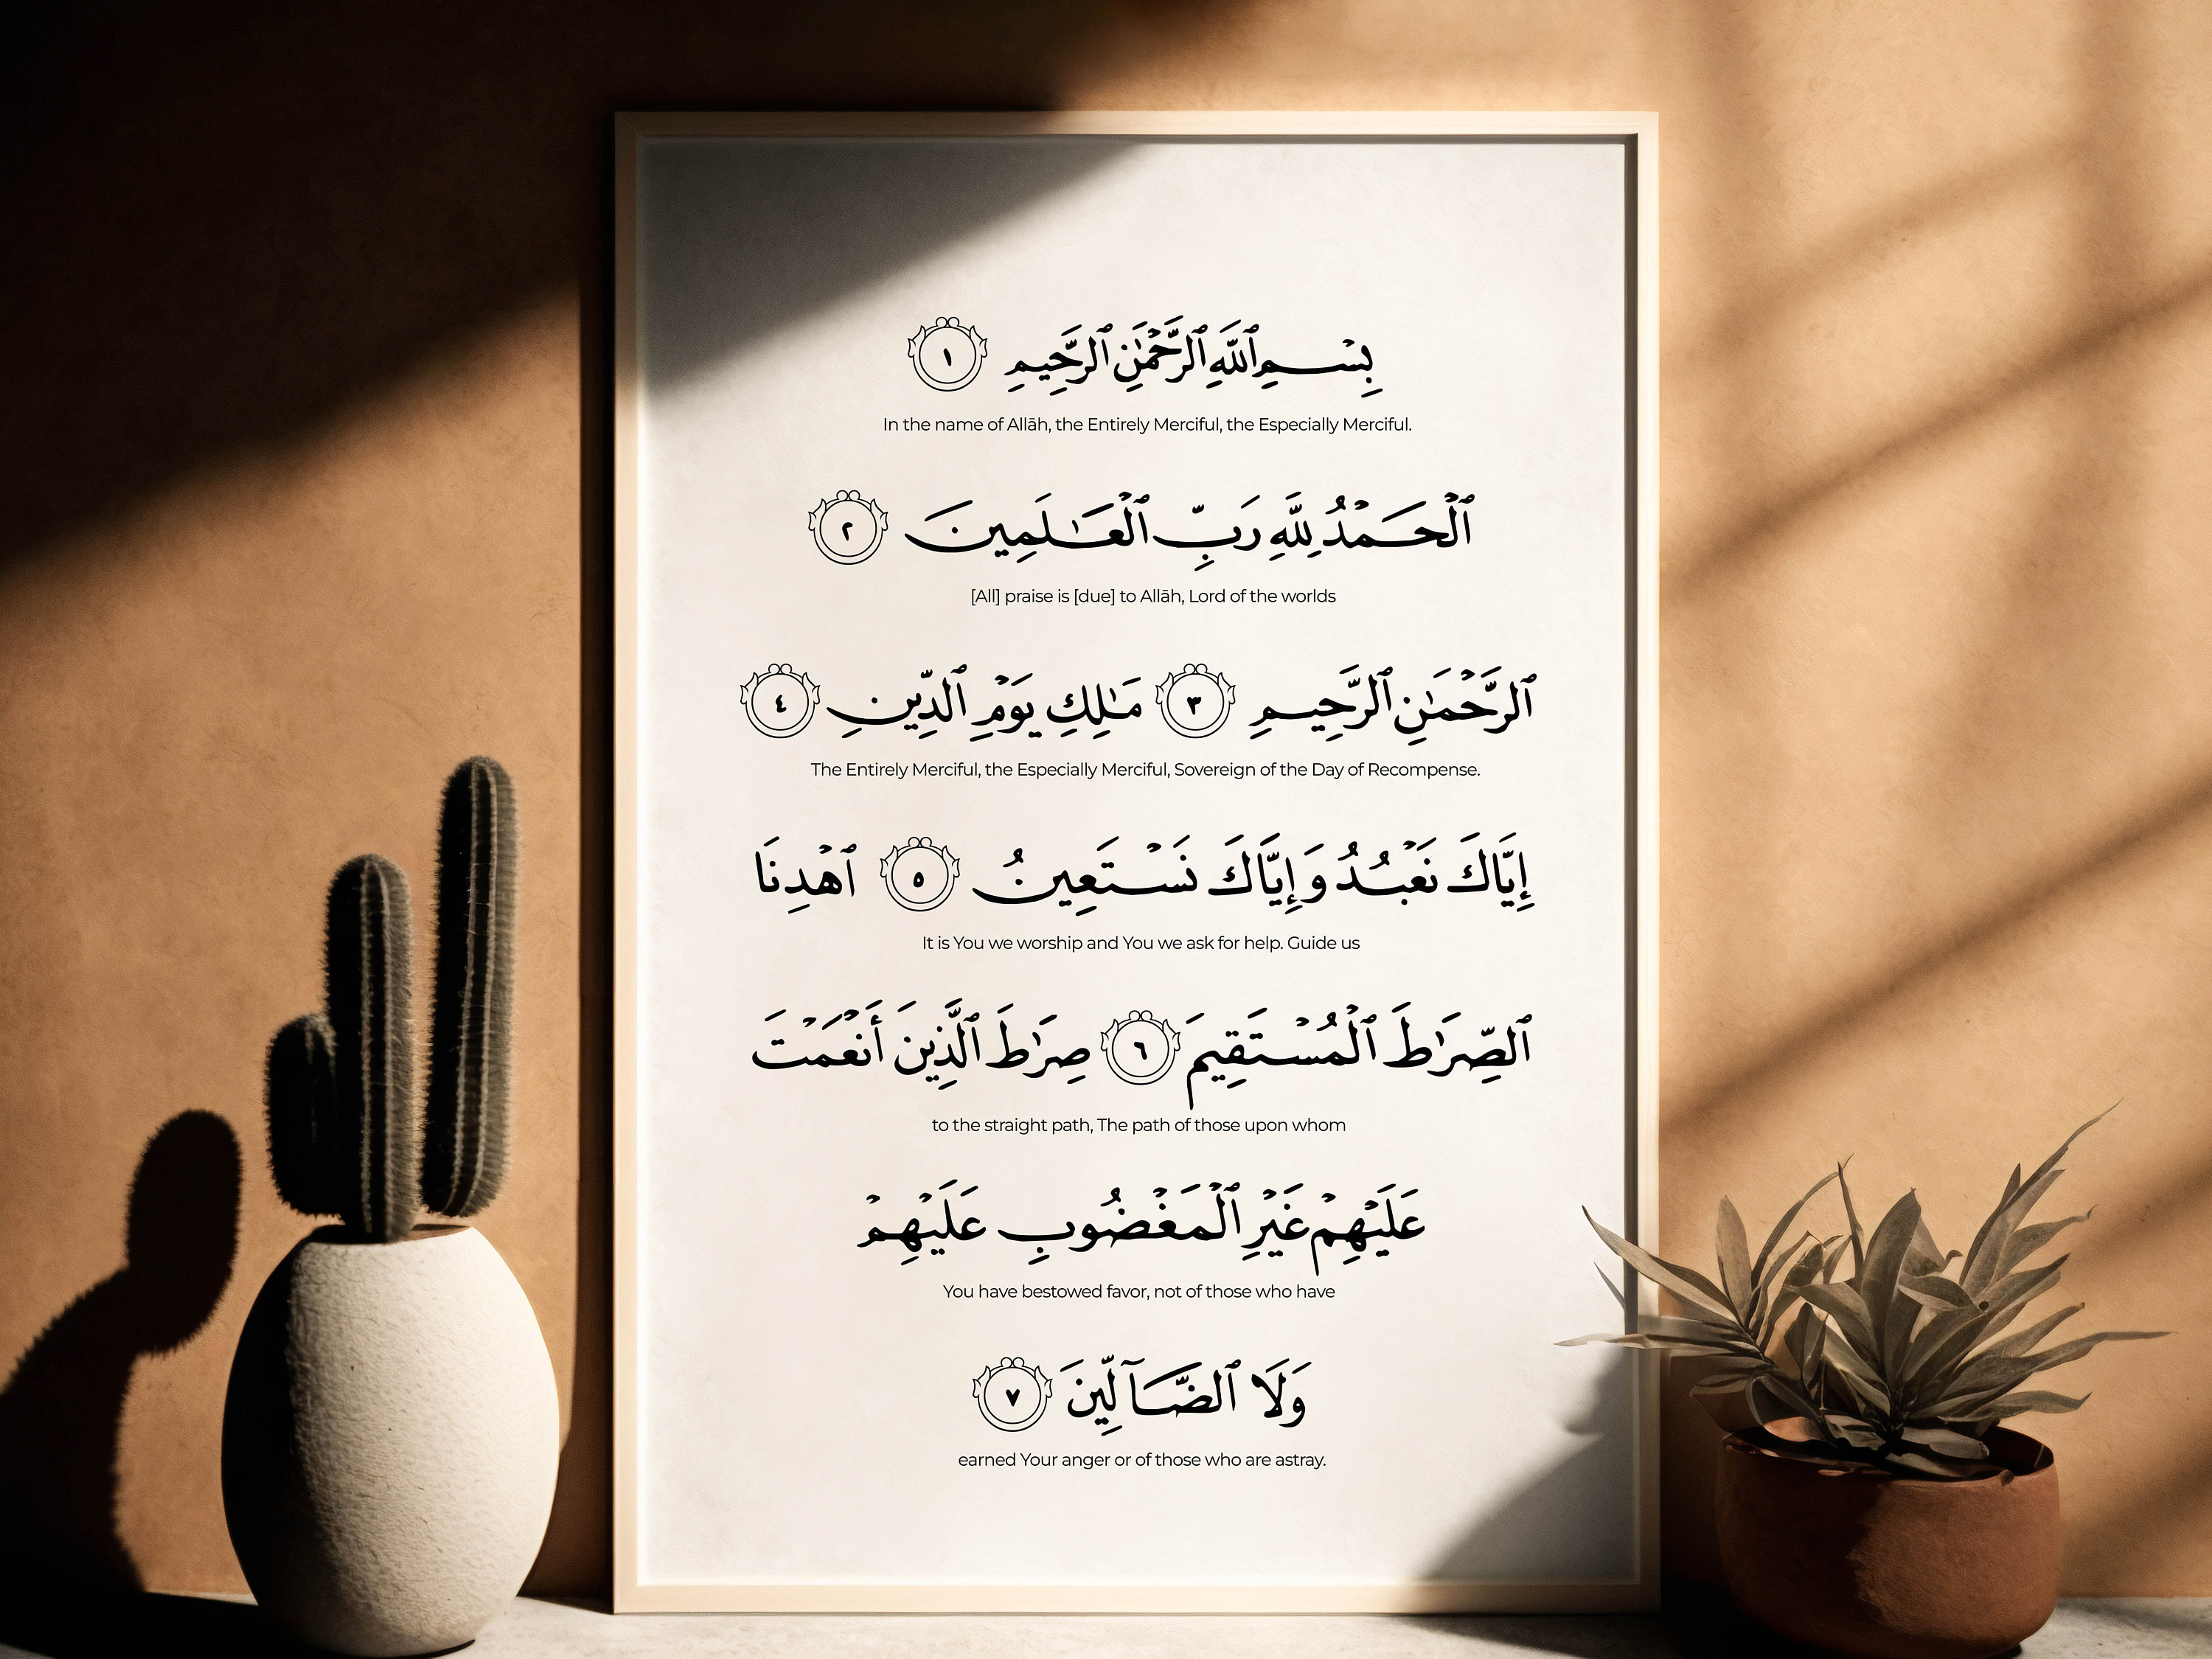 بِسْمِ ٱللَّهِ ٱلرَّحْمَٰنِ ٱلرَّحِيمِ ١
In the name of Allāh, the Entirely Merciful, the Especially Merciful.
ٱلْحَمْدُ لِلَّهِ رَبِّ ٱلْعَـٰلَمِينَ ٢
[All] praise is [due] to Allāh, Lord of the worlds
ٱلرَّحْمَـٰنِ ٱلرَّحِيمِ ٣ مَـٰلِكِ يَوْمِ ٱلدِّينِ ٤
The Entirely Merciful, the Especially Merciful, Sovereign of the Day of Recompense.
إِيَّاكَ نَعْبُدُ وَإِيَّاكَ نَسْتَعِينُ ٥ ٱهْدِنَا
It is You we worship and You we ask for help. Guide us
ٱلصِّرَٰطَ ٱلْمُسْتَقِيمَ ٦ صِرَٰطَ ٱلَّذِينَ أَنْعَمْتَ
to the straight path, The path of those upon whom
عَلَيْهِمْ غَيْرِ ٱلْمَغْضُوبِ عَلَيْهِمْ
You have bestowed favor, not of those who have
وَلَا ٱلضَّآلِّينَ ٧
earned Your anger or of those who are astray.